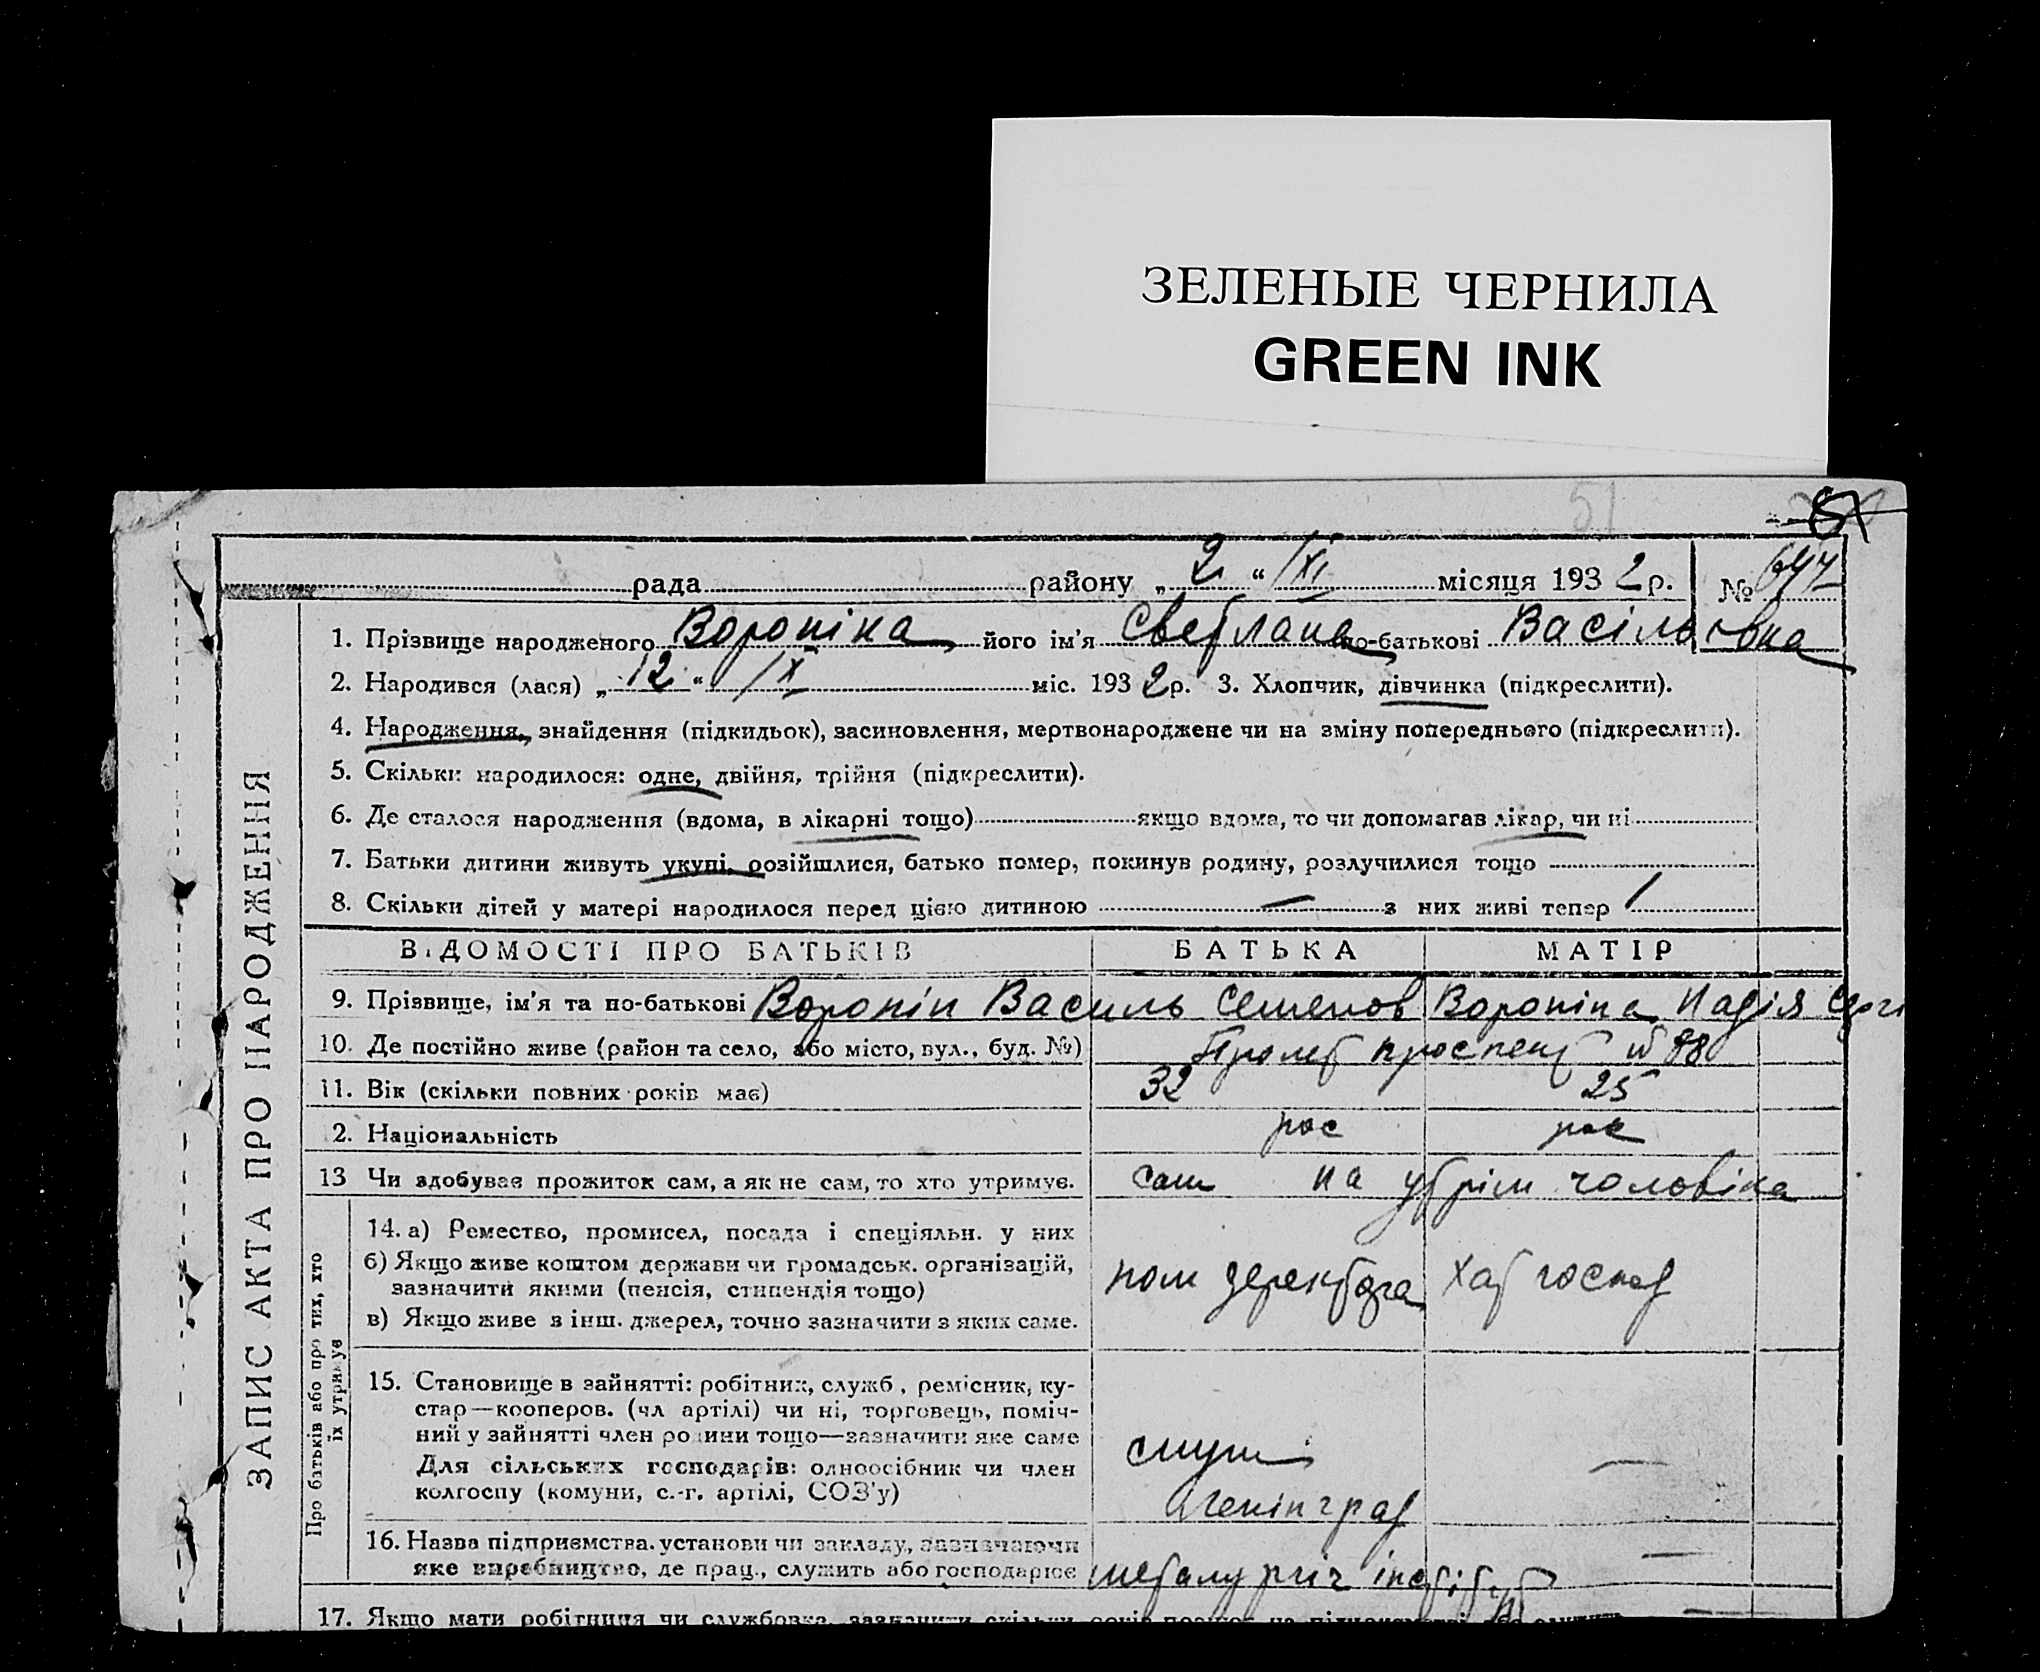 ЗЕЛЕНЫЕ ЧЕРНИЛА
GREEN INK
51
рада районy „ 2 “ /XI місяця 193 2 р. № 644
ЗАПИС АКТА ПРО НАРОДЖЕННЯ
1. Прізвище народженого Вороніна його ім'я Светлана по-батькові Васільовна
2. Народився (лася) „ 12 “ /X міс. 193 2 р. 3. Хлопчик, дівчинка (підкреслити).
4. Народження, знайдення (підкидьок), засиновлення, мертвонароджене чи на зміну попереднього (підкреслити).
5. Скільки народилося: одне, двійня, трійня (підкреслити).
6. Де сталося народження (вдома, в лікарні тощо) якщо вдома, то чи допомагав лікар, чи ні
7. Батьки дитини живуть укупі, розійшлися, батько помер, покинув родину, розлучилися тощо
8. Скільки дітей у матері народилося перед цією дитиною — з них живі тепер /
ВІДОМОСТІ ПРО БАТЬКІВ БАТЬКА МАТІР
9. Прізвище, ім'я та по-батькові Воронін Василь Семенов Вороніна Надія
10. Де постійно живе (район та село, або місто, вул., буд. №) Пролет проспект № 98
11. Вік (скільки повних років має) 32 25
12. Національність рос рос
13 Чи здобуває прожиток сам, а як не сам, то хто утримує. сам на утрім чоловіка
Про батьків або про тих, хто їх утримує
14. а) Ремество, промисел, посада і спеціяльн. у них
б) Якщо живе коштом держави чи громадськ. організацій,
зазначити якими (пенсія, стипендія тощо)
в) Якщо живе з інш. джерел, точно зазначити з яких саме.
пом директора хат господ
15. Становище в зайнятті: робітник, служб, ремісник, ку-
стар—кооперов. (чл артілі) чи ні, торговець, поміч-
ний у зайнятті член родини тощо—зазначити яке саме
Для сільських господарів: одноосібник чи член
колгоспу (комуни, с.-г. артілі, СОЗ'у)
служ —
Ленінград
16. Назва підприємства. установи чи закладу, зазначаючи
яке виробництво, де прац., служить або господарює
металургіч інститут —
17. Якщо мати робітниця чи службовка, зазначити скільки років